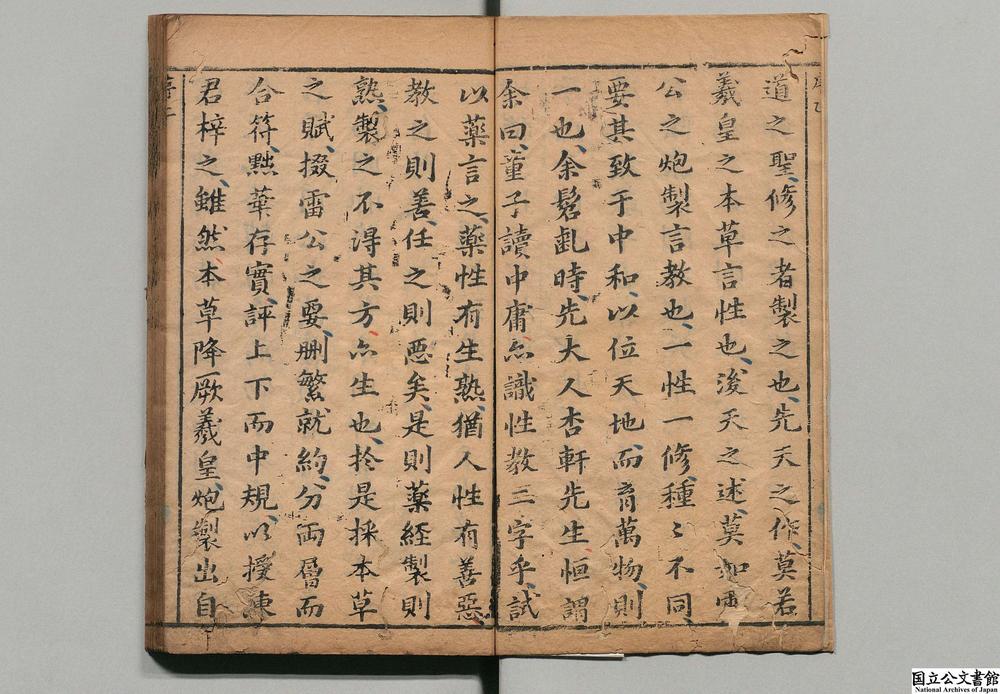 道之聖、修之者製之也、先天之作、莫若
羲皇之本草言性也、後天之述、莫如雷
公之炮製言教也、一性一修、種〻不同、
要其致于中和、以位天地、而育萬物、則
一也、余髫齓時、先大人杏軒先生恒謂
余曰、童子讀中庸、亦識性教二字乎、試
以藥言之、藥性有生熟、猶人性有善惡、
教之則善、任之則惡矣、是則藥経製則
熟、製之不淂其方、亦生也、扵是採本草
之賦、掇雷公之要、刪繁就約、分両層而
合符、黜華存實、評上下而中規、以授東
君梓之、雖然本草降厥羲皇、炮製出自
国立公文書館
National Archives of Japan